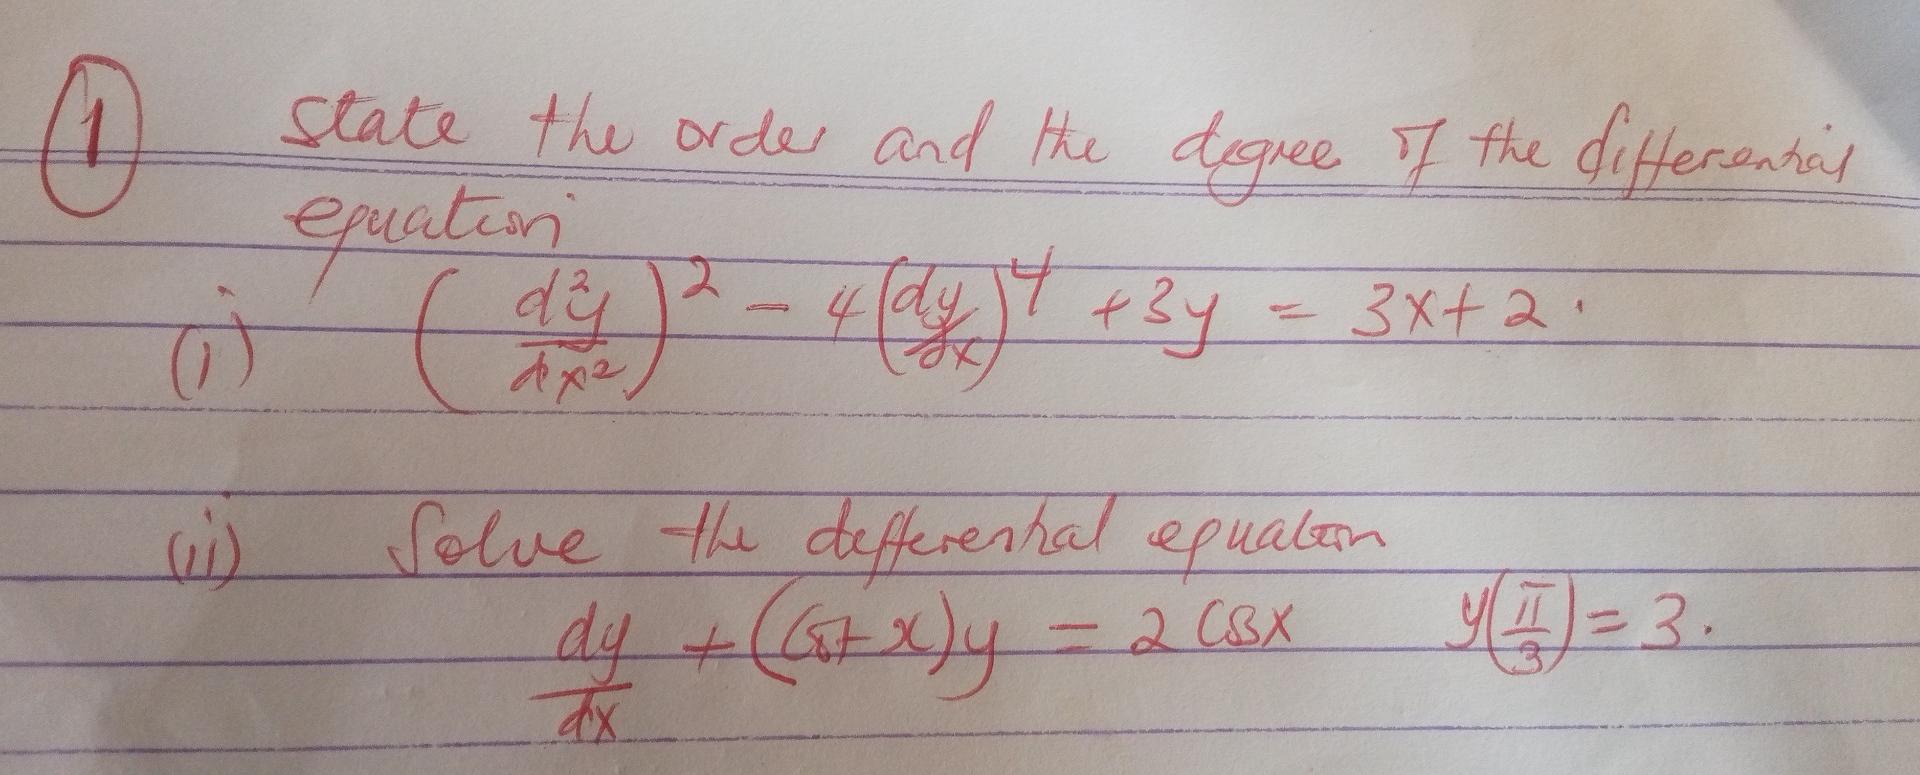 1 State the order and the degree of the differential
equation
(i) (d²y/dx²)² - 4(dy/dx)⁴ + 3y = 3x + 2.
(ii) Solve the differential equation
dy/dx + (Cot x)y = 2 Cos x y(π/3) = 3.